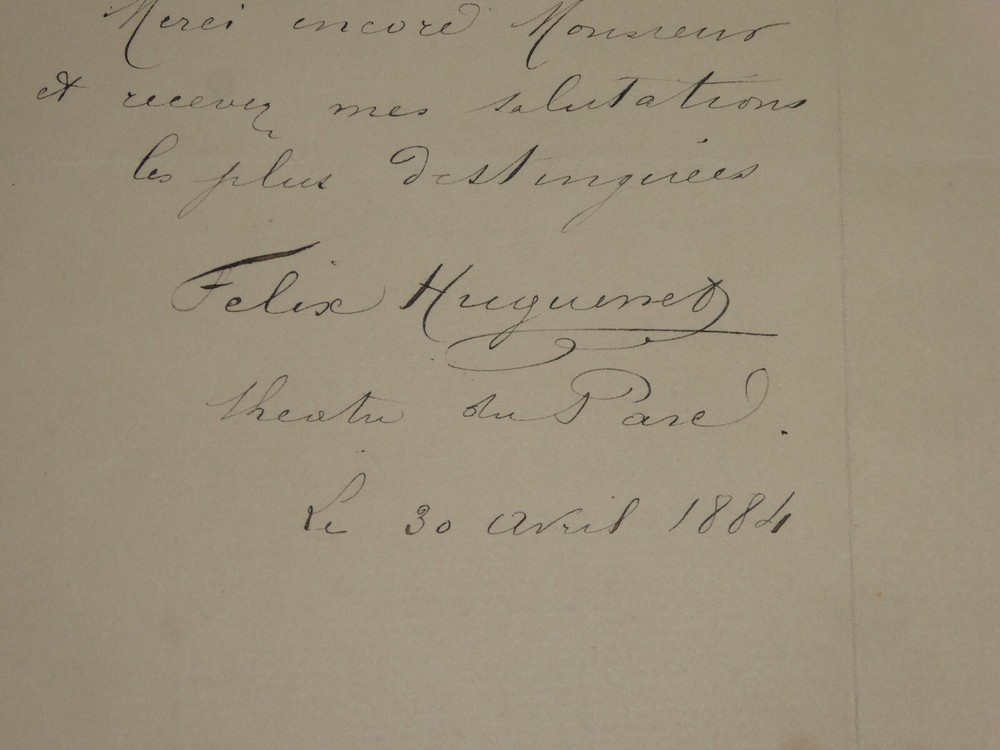 Merci encore Monsieur
et recevez mes salutations
les plus distinguées
Felix Huguenet
theatre du Parc.
Le 30 avril 1884